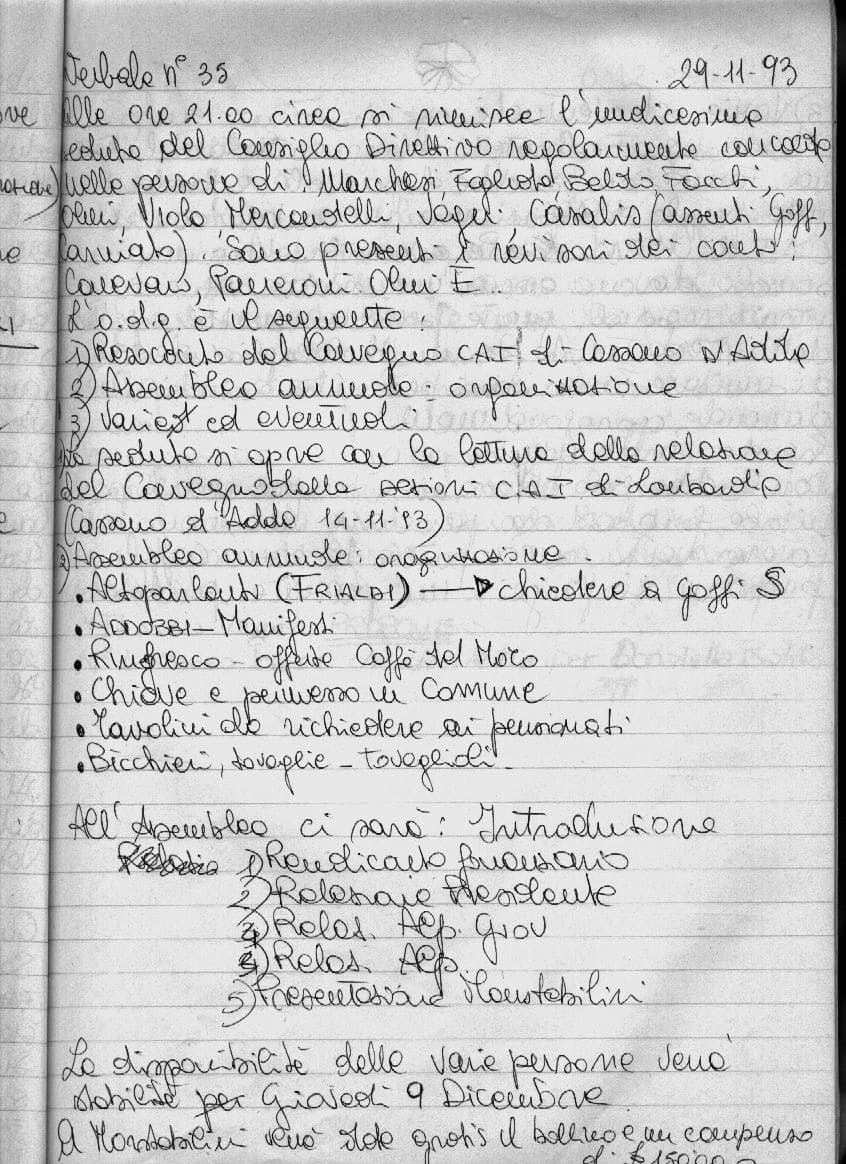 Verbale n° 35 29-11-93
Alle ore 21.00 circa si riunisce l'undicesima
seduta del Consiglio Direttivo regolarmente convocato
nelle persone di: Marchesi, Belito Facchi,
Olmi, Viola Mercandelli, Casalis (assenti Goffi,
Carniato). Sono presenti i revisori dei conti:
Canevari, Olmi E.
L'o.d.g. è il seguente
1) Resoconto del Convegno CAI di Cassano D'Adda
2) Assemblea annuale: organizzazione
3) Varie ed eventuali.
La seduta si apre con la lettura della relazione
del Convegno delle sezioni C.A.I di Lombardia
(Cassano d'Adda 14-11-93)
2) Assemblea annuale: organizzazione.
• Altoparlanti (FRIALDI) → chiedere a Goffi S
• ADDOBBI - Manifesti
• Rinfresco - offerte Caffè del Moro
• Chiave e permesso in Comune
• Tavolini da richiedere ai pensionati
• Bicchieri, tovaglie - tovaglioli.
All'Assemblea ci sarà: Introduzione
1) Rendiconto finanziario
2) Relazione Presidente
3) Relaz. Alp. Giov
4) Relaz. Alp.
5) Presentazione Monstabilini
La disponibilità delle varie persone verrà
stabilita per Giovedì 9 Dicembre.
A Monstabilini verrà dato gratis il bollino e un compenso
di
ove
ne